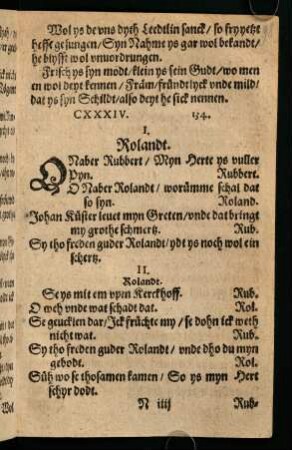 Wol ys de vns dyth Leedtlin sanck / so fry yetzt
hefft gesungen / Syn Nahme ys gar wol bekandt /
he blyfft wol vnuordrungen.
Frisch ys syn modt / klein ys sein Gudt / wo men
en woi deyt kennen / Främ / fründtlyck vnde mild /
dat ys syn Schildt / also deyt he sick nennen.
CXXXIV. 134.
I.
Rolandt.
O Naber Rubbert / Myn Herte ys vuller
Pyn. Rubbert.
O Naber Rolandt / worümme schal dat
so syn. Roland.
Johan Küster leuet myn Greten / vnde dat bringt
my grothe schmertz. Rub.
Sy tho freden guder Rolandt / ydt ys noch wol ein
schertz.
II.
Rolandt.
Se ys mit em vpen Kerckhoff. Rub.
O weh vnde wat schadt dat. Rol.
Se geucken dar / Ick früchte my / se dohn ick weth
nicht wat. Rub.
Sy tho freden guder Rolandt / vnde dho du myn
gebodt. Rol.
Süh wo se thosamen kamen / So ys myn Hert
schyr dodt.
N iiij Rub-